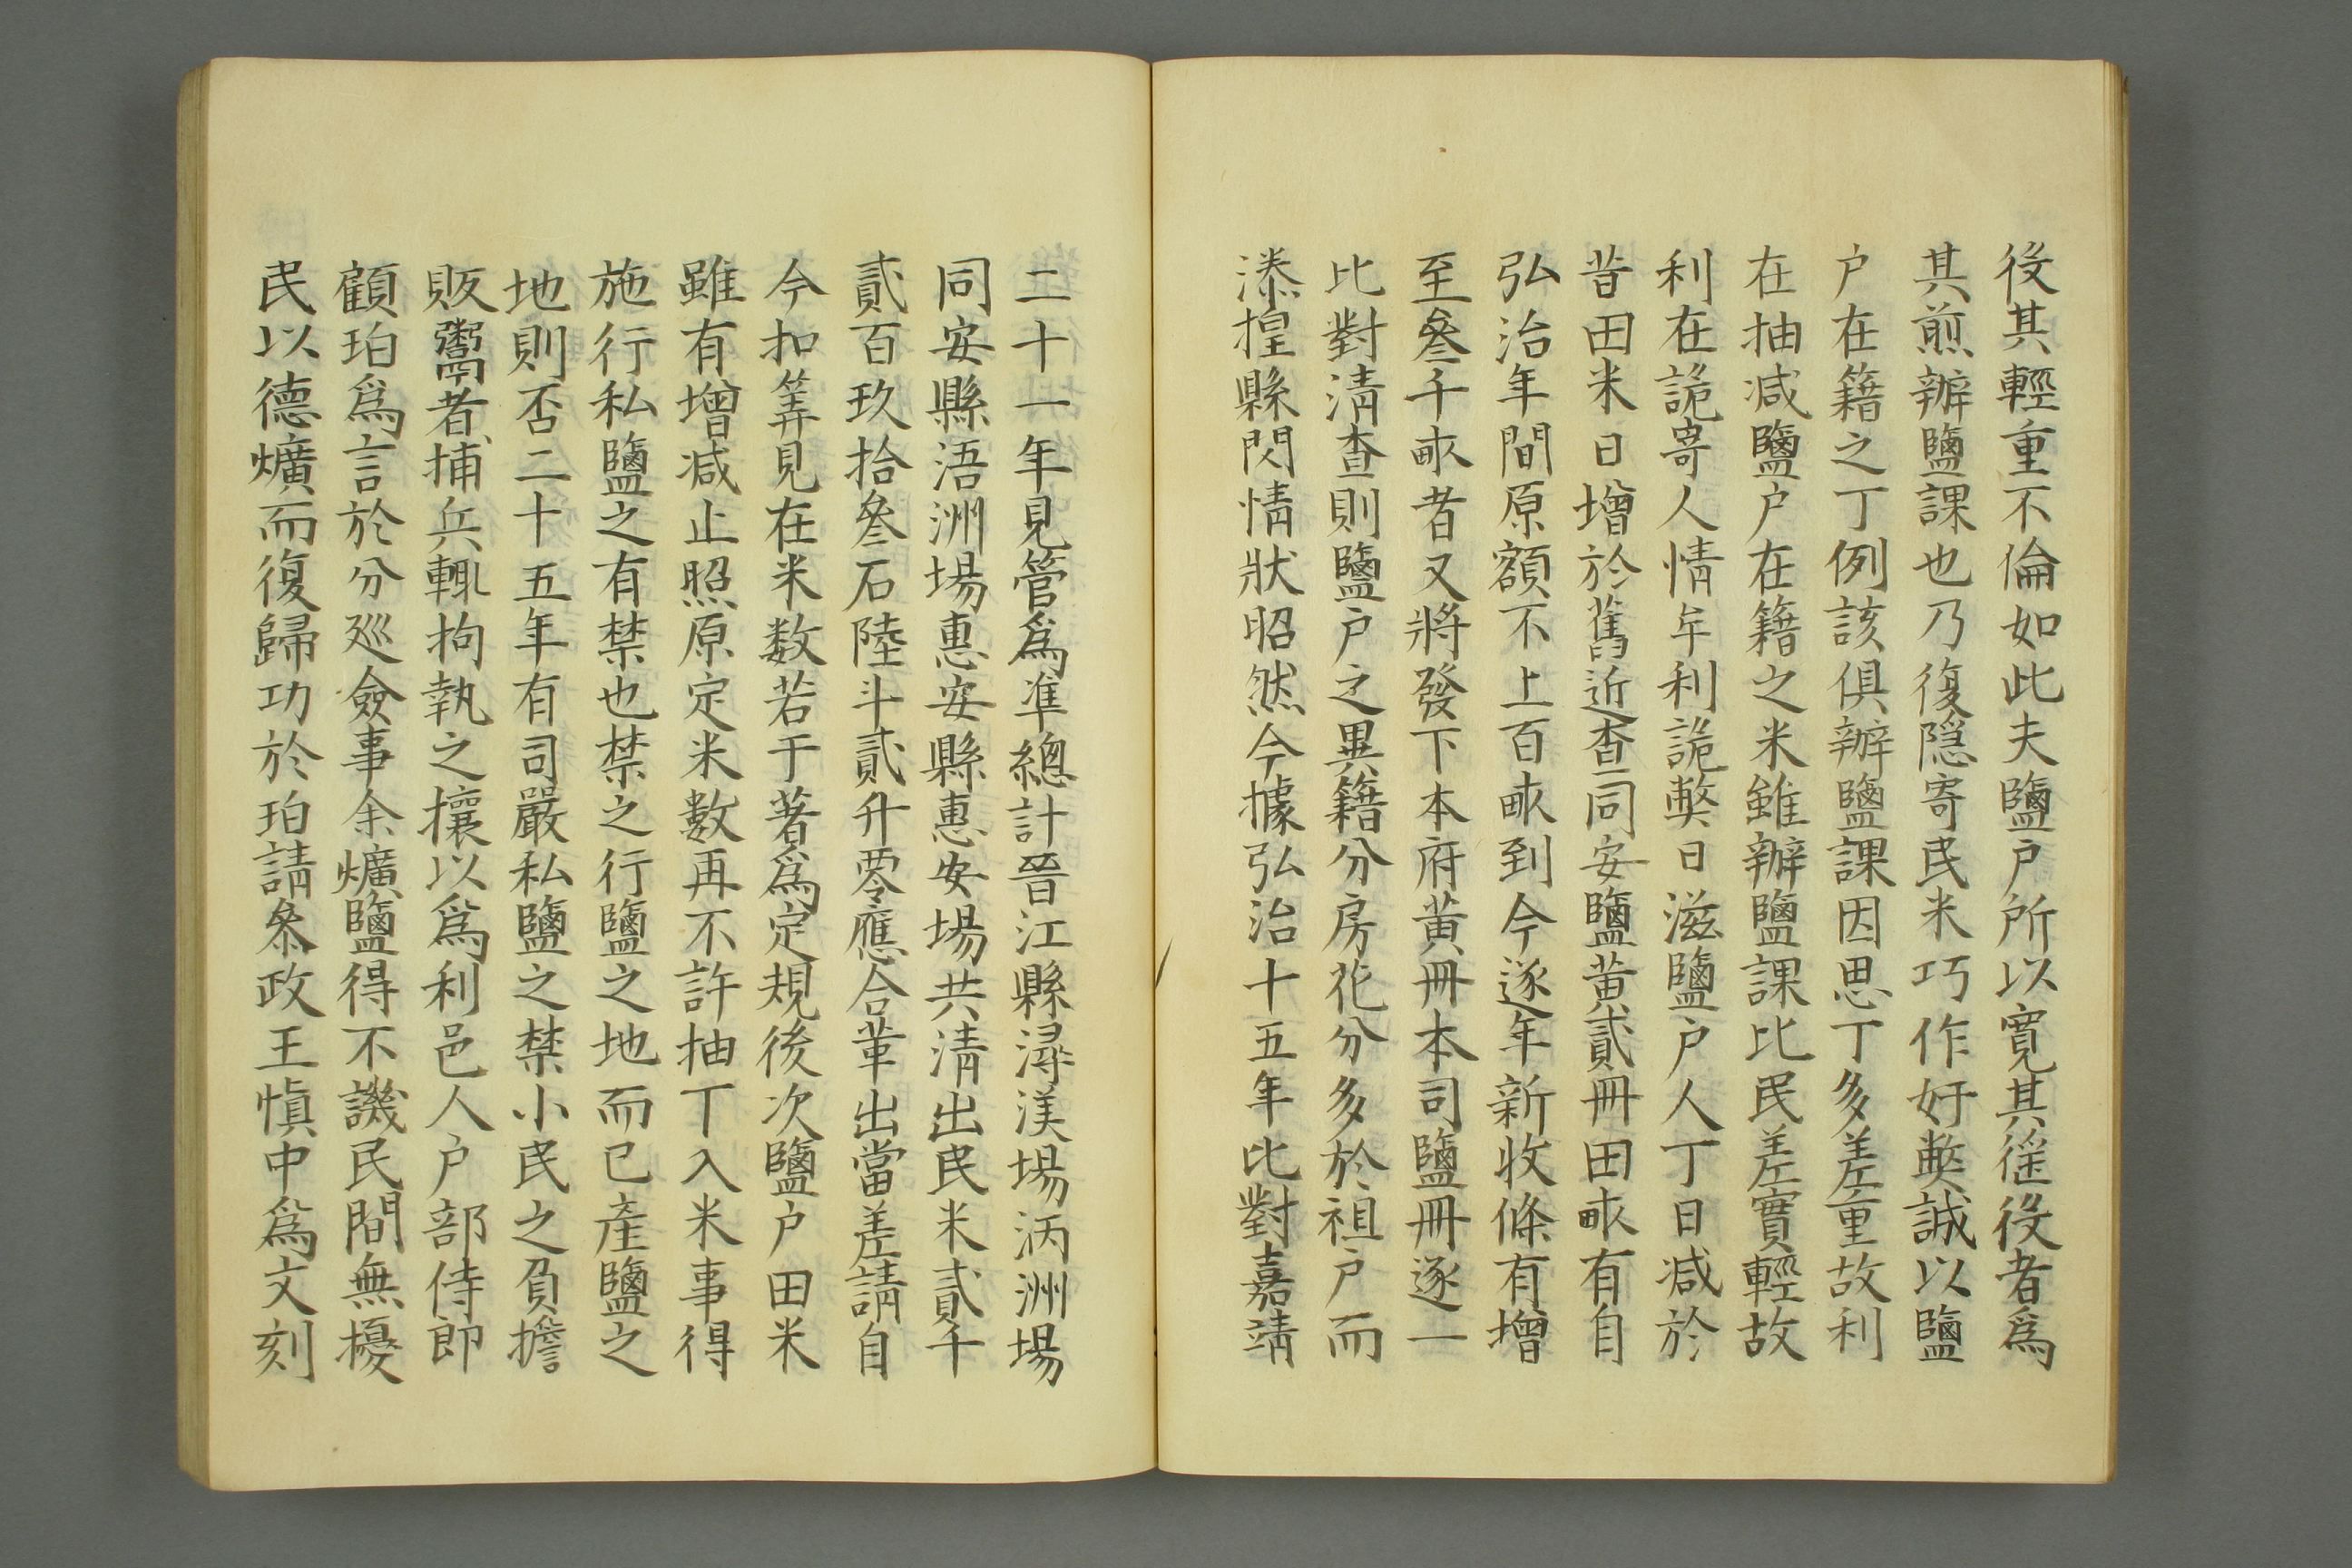 役其輕重不倫如此夫鹽户所以寬其徭役者爲
其煎辦鹽課也乃復隐寄民米巧作奸弊誠以鹽
户在籍之丁例該俱辦鹽課因思丁多差重故利
在抽减鹽户在籍之米雖辦鹽課比民差實輕故
利在詭寄人情牟利詭弊日滋鹽户人丁日减於
昔田米日增於舊近查同安鹽黄貳冊田畝有自
弘治年間原額不上百畝到今逐年新收條有增
至叄千畝者又將發下本府黄冊本司鹽冊逐一
比對清查則鹽户之異籍分房花分多於祖户而
漆揘縣閃情狀昭然今據弘治十五年比對嘉靖
二十一年見管爲凖總計晉江縣潯渼場洒洲場
同安縣浯洲場惠安縣惠安場共清出民米貳千
貳百玖拾叄石陸斗貳升零應合革出當差請自
今扣筭見在米数若干著爲定規後次鹽户田米
雖有增减止照原定米數再不許抽丁入米事得
施行私鹽之有禁也禁之行鹽之地而已產鹽之
地則否二十五年有司嚴私鹽之禁小民之負擔
販鬻者捕兵輙拘執之攘以爲利邑人户部侍郎
顧珀爲言於分廵僉事余爌鹽得不譏民間無擾
民以德爌而復歸功於珀請叅政王慎中爲文刻